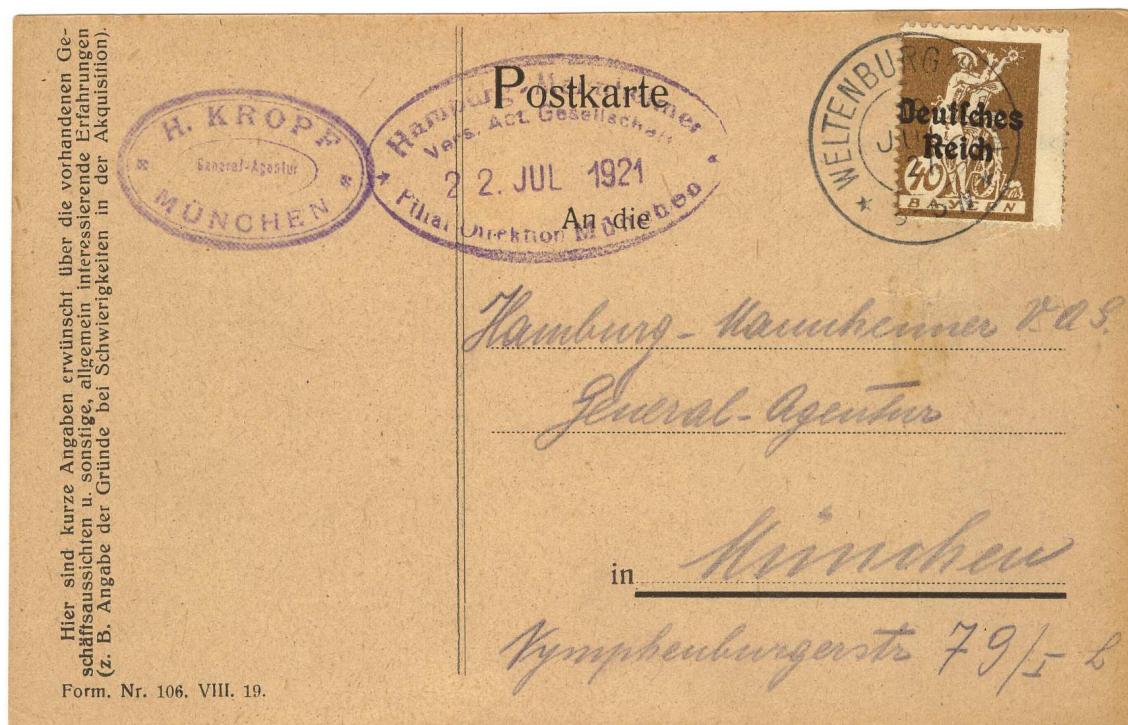 Hier sind kurze Angaben erwünscht über die vorhandenen Ge-
schäftsaussichten u. sonstige, allgemein interessierende Erfahrungen
(z. B. Angabe der Gründe bei Schwierigkeiten in der Akquisition).
Form. Nr. 106. VIII. 19.
H. KROPF
General-Agentur
MÜNCHEN
Hamburg-Mannheimer
Vers. Act. Gesellschaft
22. JUL 1921
Filial-Direktion München
Postkarte
An die
WELTENBURG
Deutsches
Reich
40
BAYERN
Hamburg-Mannheimer V. A. G.
General-Agentur
in München
Nymphenburgerstr 79/I L